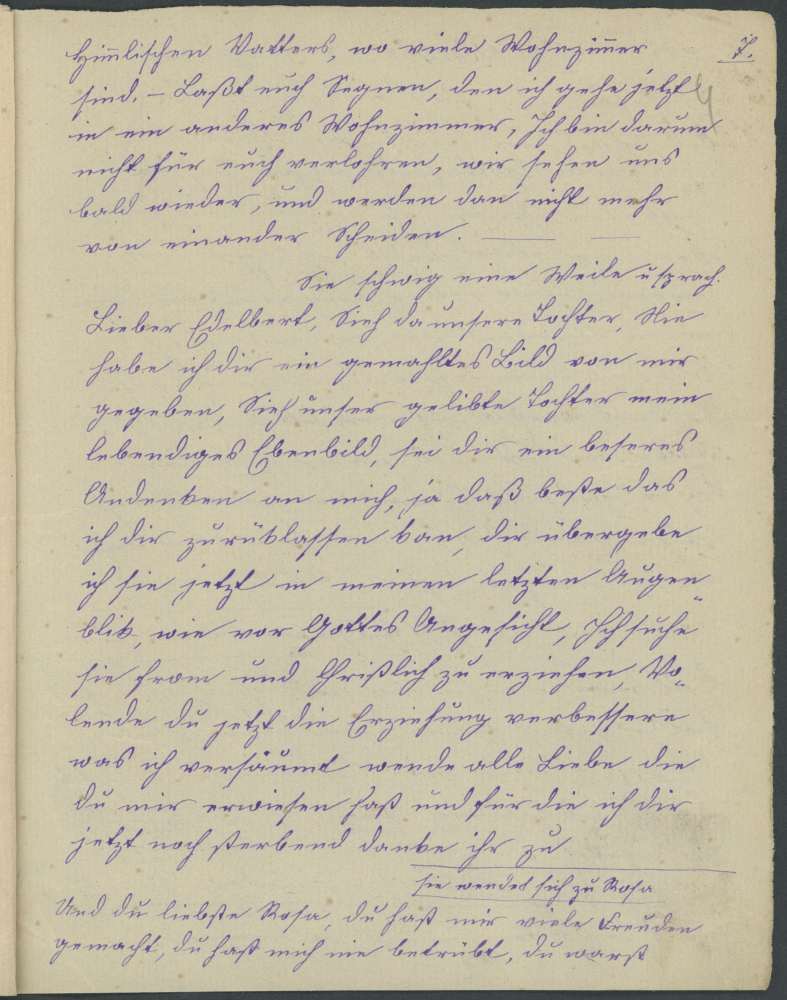 7.
Himlischen Vatters, wo viele Wohnzimer
sind. – Laßt euch Segnen, den ich gehe jetzt
in ein anderes Wohnzimmer, Ich bin darum
nicht für euch verlohren, wir sehen uns
bald wieder, und werden dan nicht mehr
von einander Scheiden. —— ——
Sie schwig eine Weile u sprach.
Lieber Edelbert, Sieh da unsere Tochter, Nie
habe ich dir ein gemahltes Bild von mir
gegeben, Sieh unser gelibte Tochter mein
lebendiges Ebenbild, sei dir ein beseres
Andenken an mich, ja daß beste das
ich dir zurüklassen kan, dir übergebe
ich sie jetzt in meinen letzten Augen
blik, wie vor Gottes Angesicht, Ich suche
sie from und Christlich zu erziehen, Vo-
lende du jetzt die Erziehung verbessere
was ich versäumt wende alle Liebe die
du mir erwiesen hast und für die ich dir
jetzt noch sterbend danke ihr zu
sie wendet sich zu Rosa
Und du liebste Rosa, du hast mir viele Freuden
gemacht, du hast mich nie betrübt, du warst